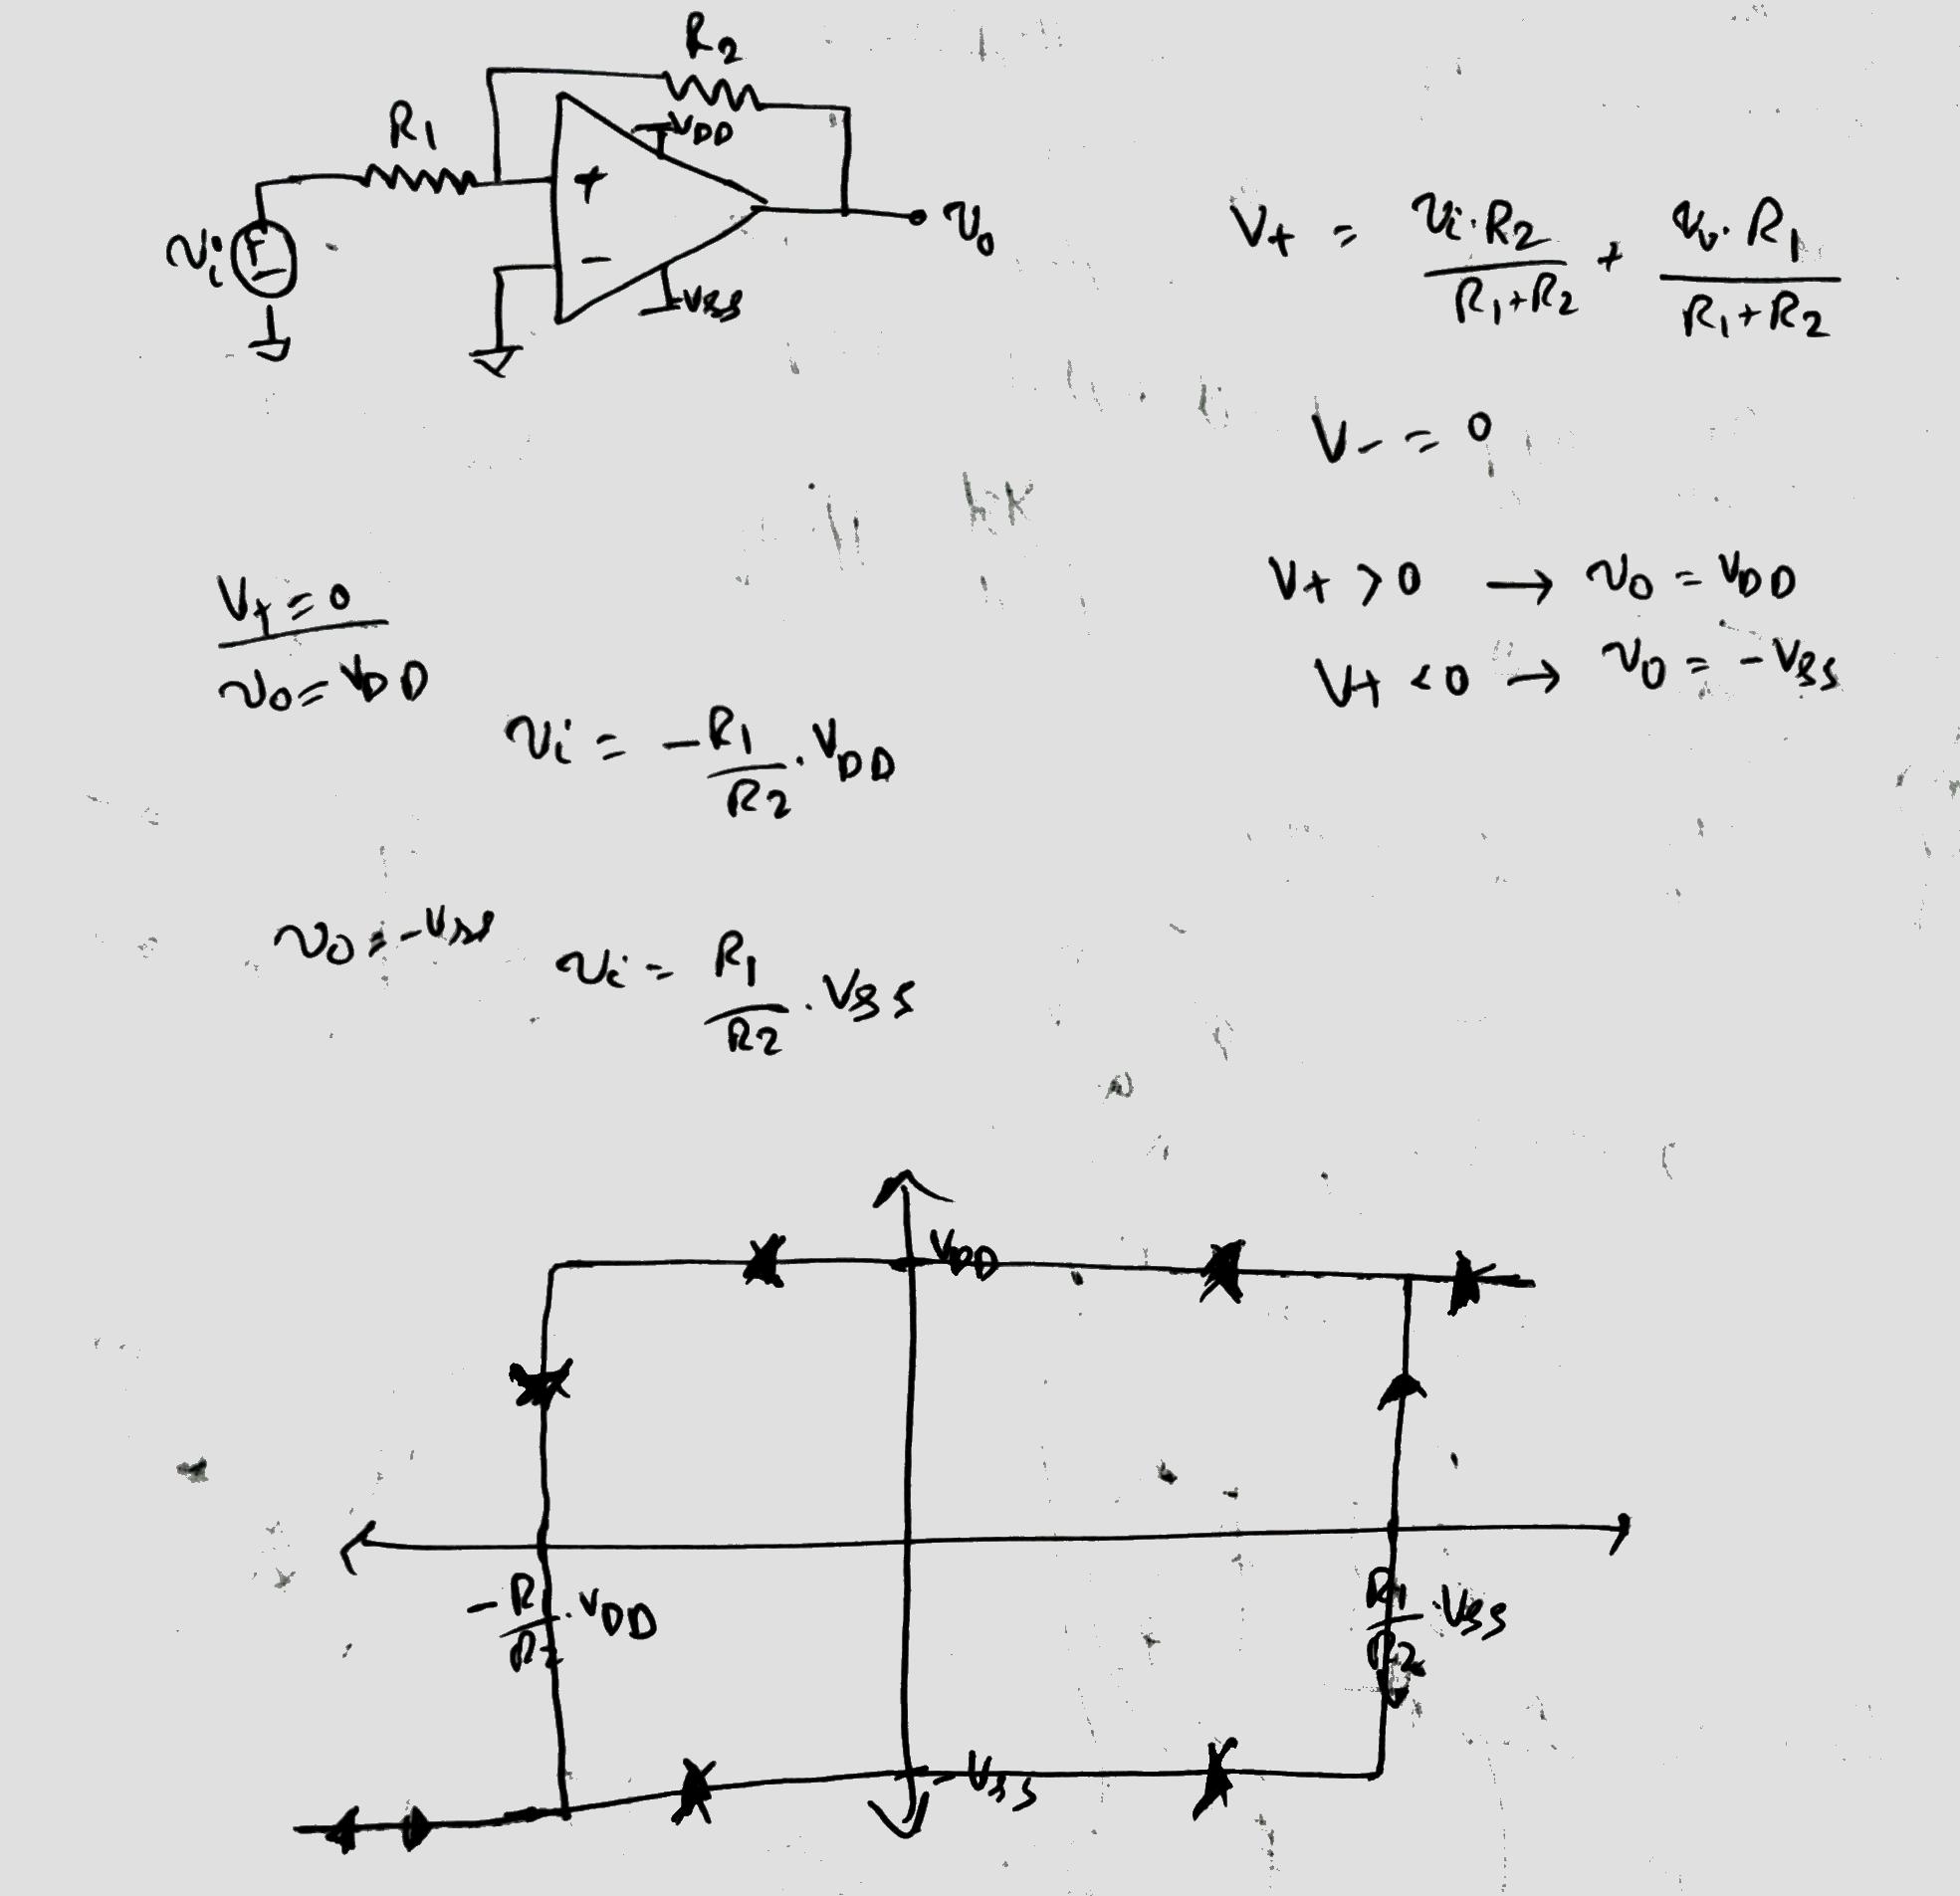 R2
R1
VDD
+
vi
vo
-
-VSS
V+ = vi.R2/(R1+R2) + vo.R1/(R1+R2)
V- = 0
V+ > 0 → vo = VDD
V+ < 0 → vo = -VSS
V+ = 0
vo = VDD
vi = -R1/R2 . VDD
vo = -VSS
vi = R1/R2 . VSS
VDD
-R/R2 . VDD
R1/R2 . VSS
-VSS